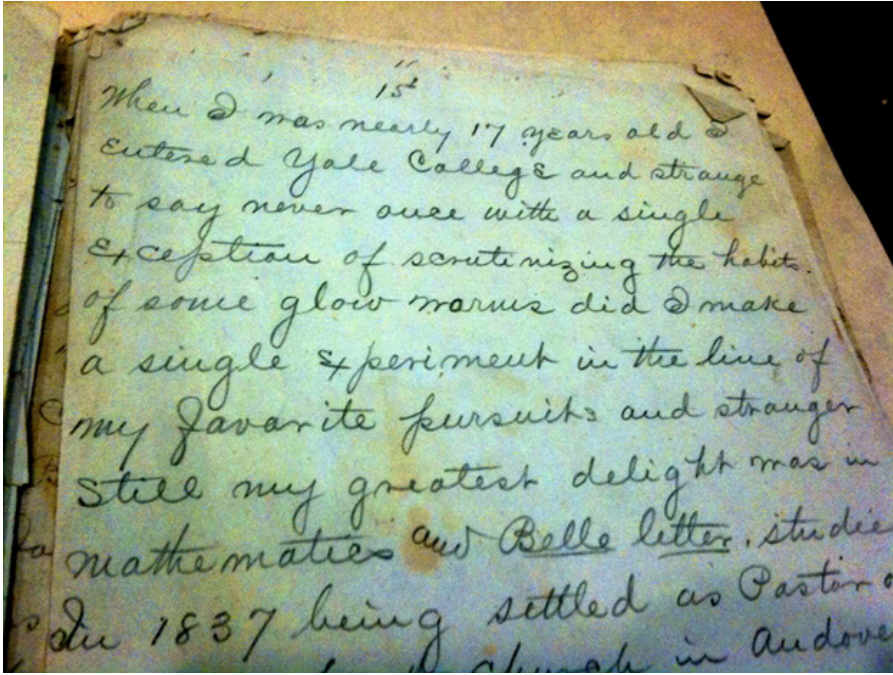 15"
When I was nearly 17 years old I
entered Yale College and strange
to say never once with a single
exception of scrutinizing the habits
of some glow worms did I make
a single experiment in the line of
my favorite pursuits and stranger
still my greatest delight was in
mathematics and Belle letter. studie
In 1837 being settled as Pastor o
church in Andove